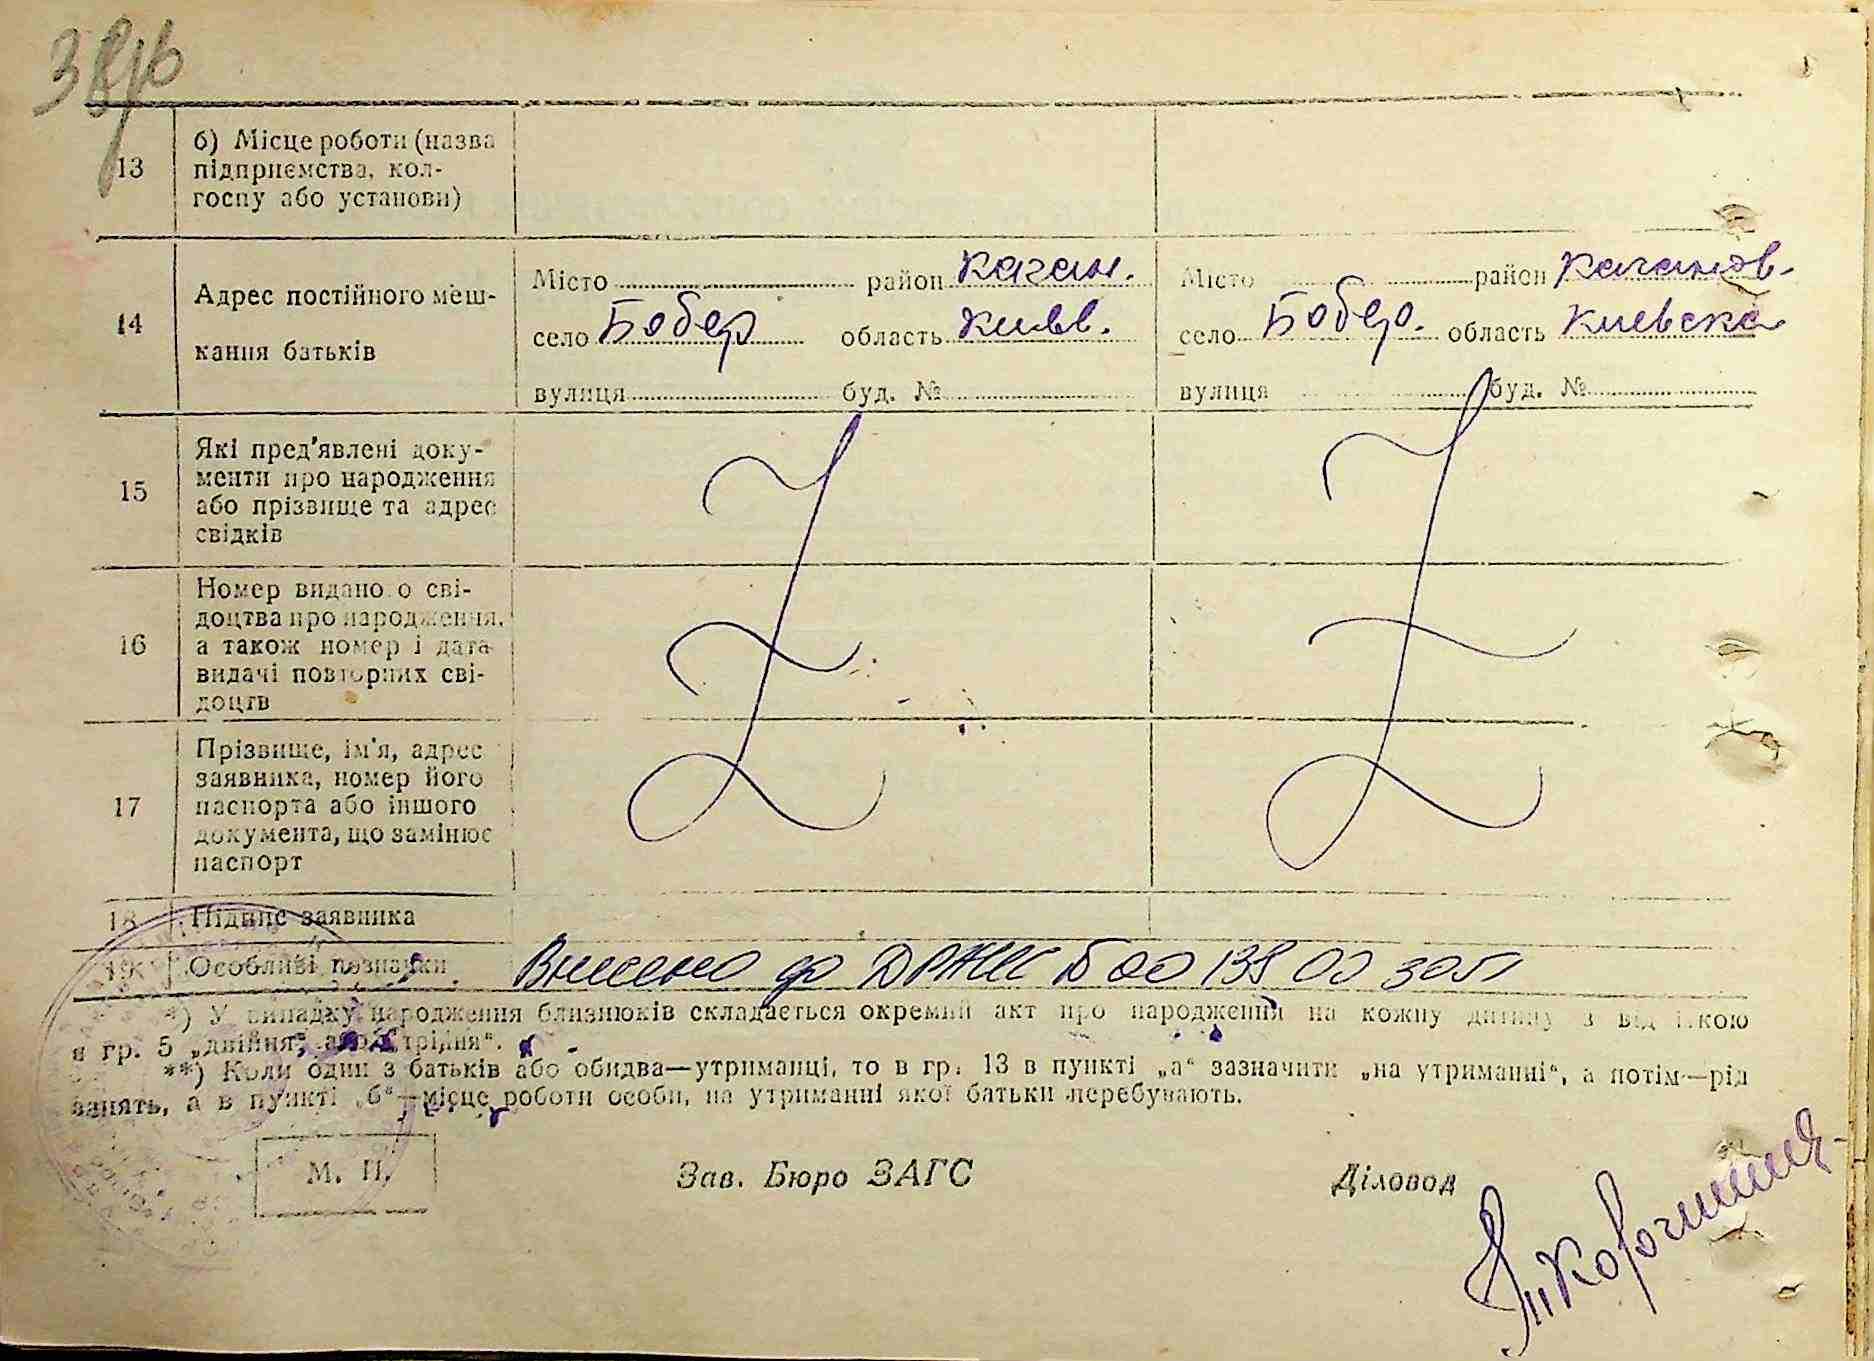 38
13
б) Місце роботи (назва
підприємства, кол-
госпу або установи)
14
Адрес постійного меш-
кання батьків
Місто район Каган.
село Бобер область Київ.
вулиця буд. №
Місто район Каганов.
село Бобер. область Киевска
вулиця буд. №
15
Які пред'явлені доку-
менти про народження
або прізвище та адрес
свідків
16
Номер видано о сві-
доцтва про народження,
а також номер і дата
видачі повторних сві-
доцтв
17
Прізвище, ім'я, адрес
заявника, номер його
паспорта або іншого
документа, що замінює
паспорт
18 Підпис заявника
19 Особливі познаки Внесено до ДРАЦС
*) У випадку народження близнюків складається окремий акт про народження на кожну дитину з від іткою
в гр. 5 „двійня“, або „трійня“.
**) Коли один з батьків або обидва—утриманці, то в гр. 13 в пункті „а“ зазначити „на утриманні“, а потім—рід
занять, а в пункті „б“—місце роботи особи, на утриманні якої батьки перебувають.
М. П.
Зав. Бюро ЗАГС
Діловод